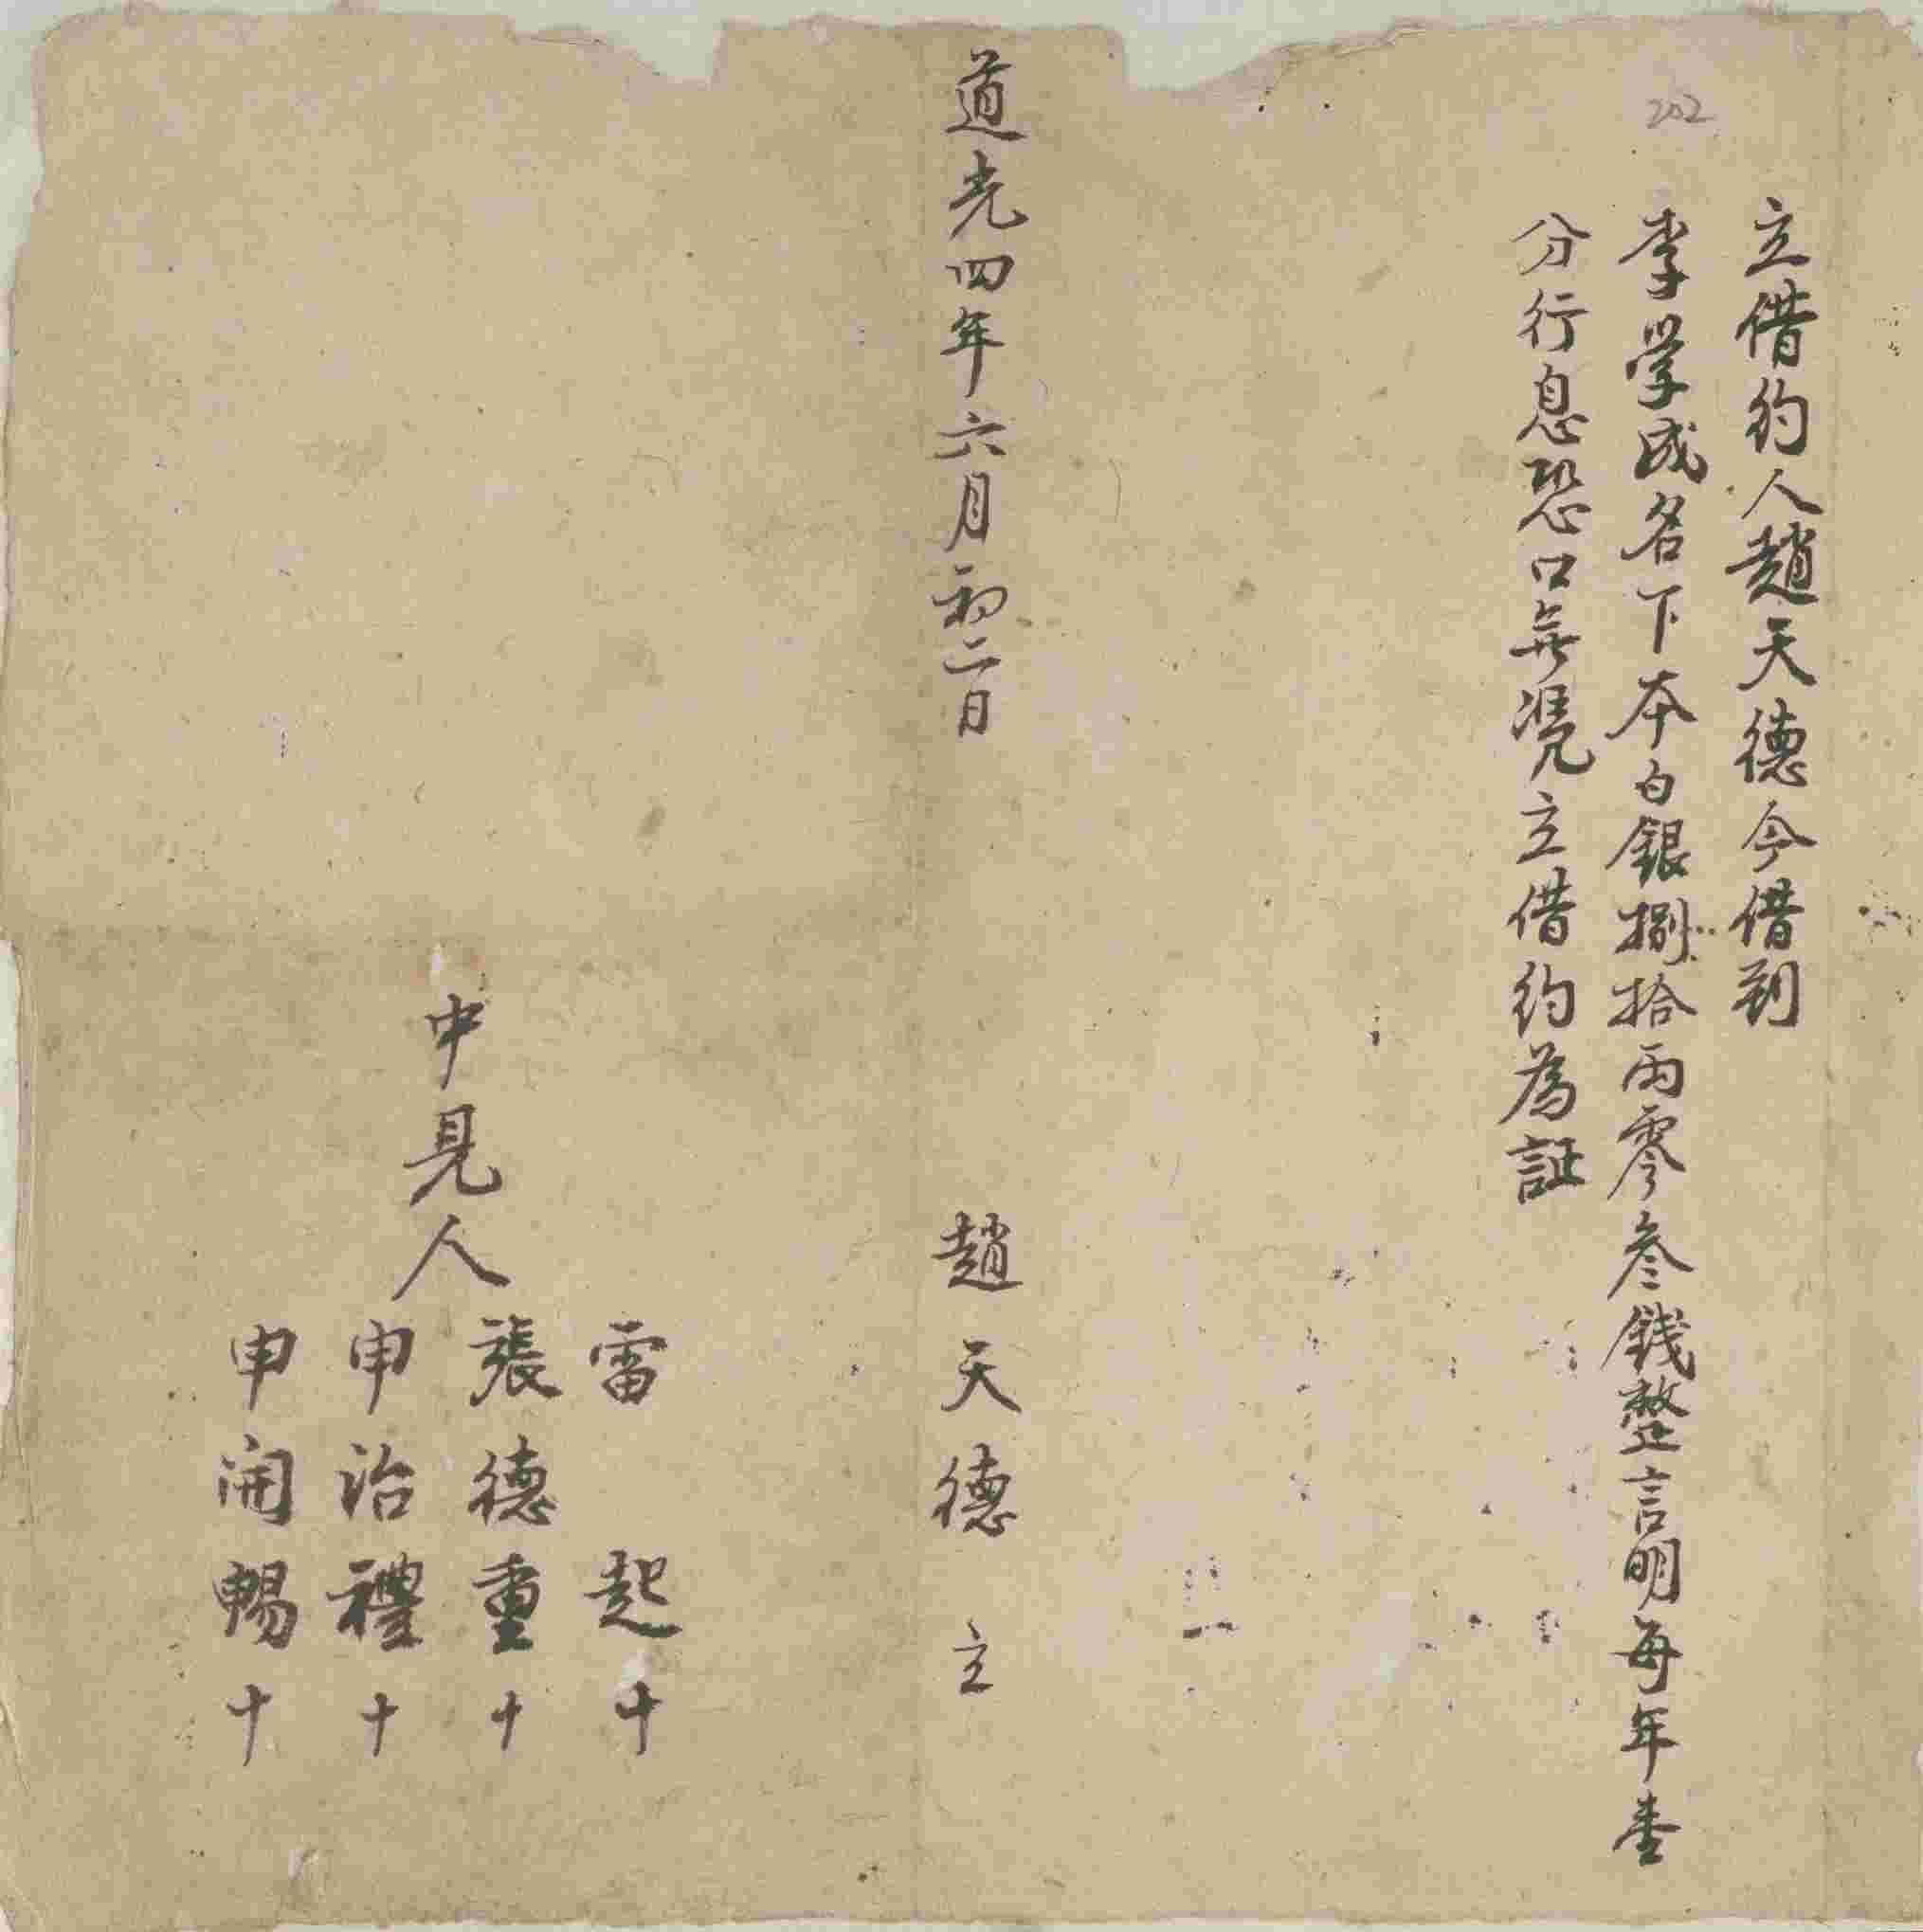 202
立借約人趙天德今借到
李學成名下本白銀捌拾兩零叁錢整言明每年壹
分行息恐口無凴立借約為証
道光四年六月初二日
趙天德 立
中見人
雷 起 十
張德重 十
申治禮 十
申開暢 十